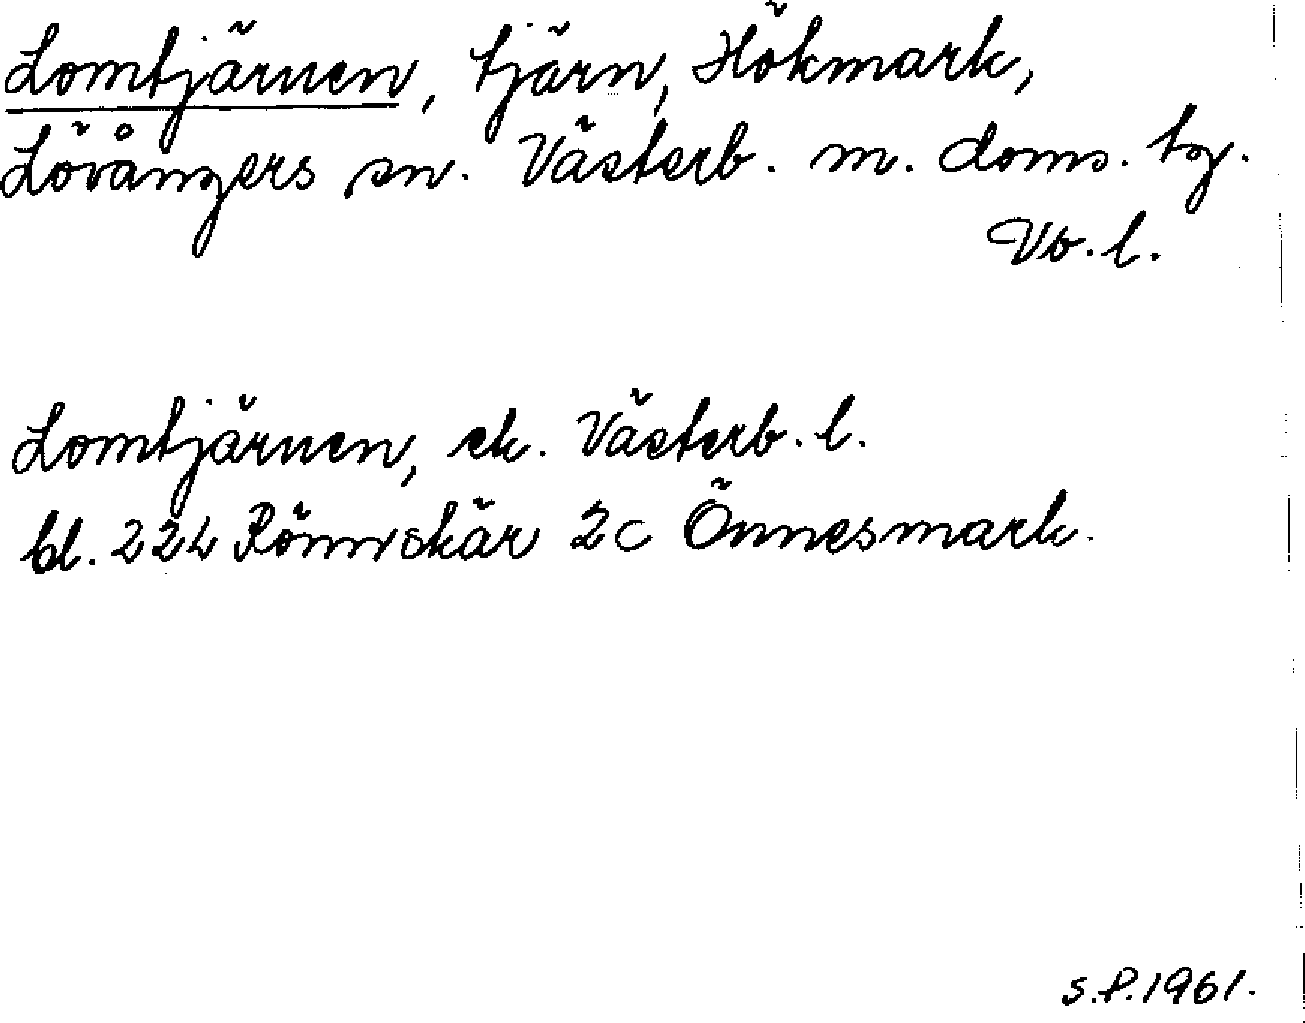 Lomtjärnen, tjärn, Hökmark,
Lövångers sn. Västerb. m. doms. tg.
Vb. l.
Lomtjärnen, ek. Västerb. l.
bl. 22L Rönnskär 2c Önnesmark.
S.P. 1961.